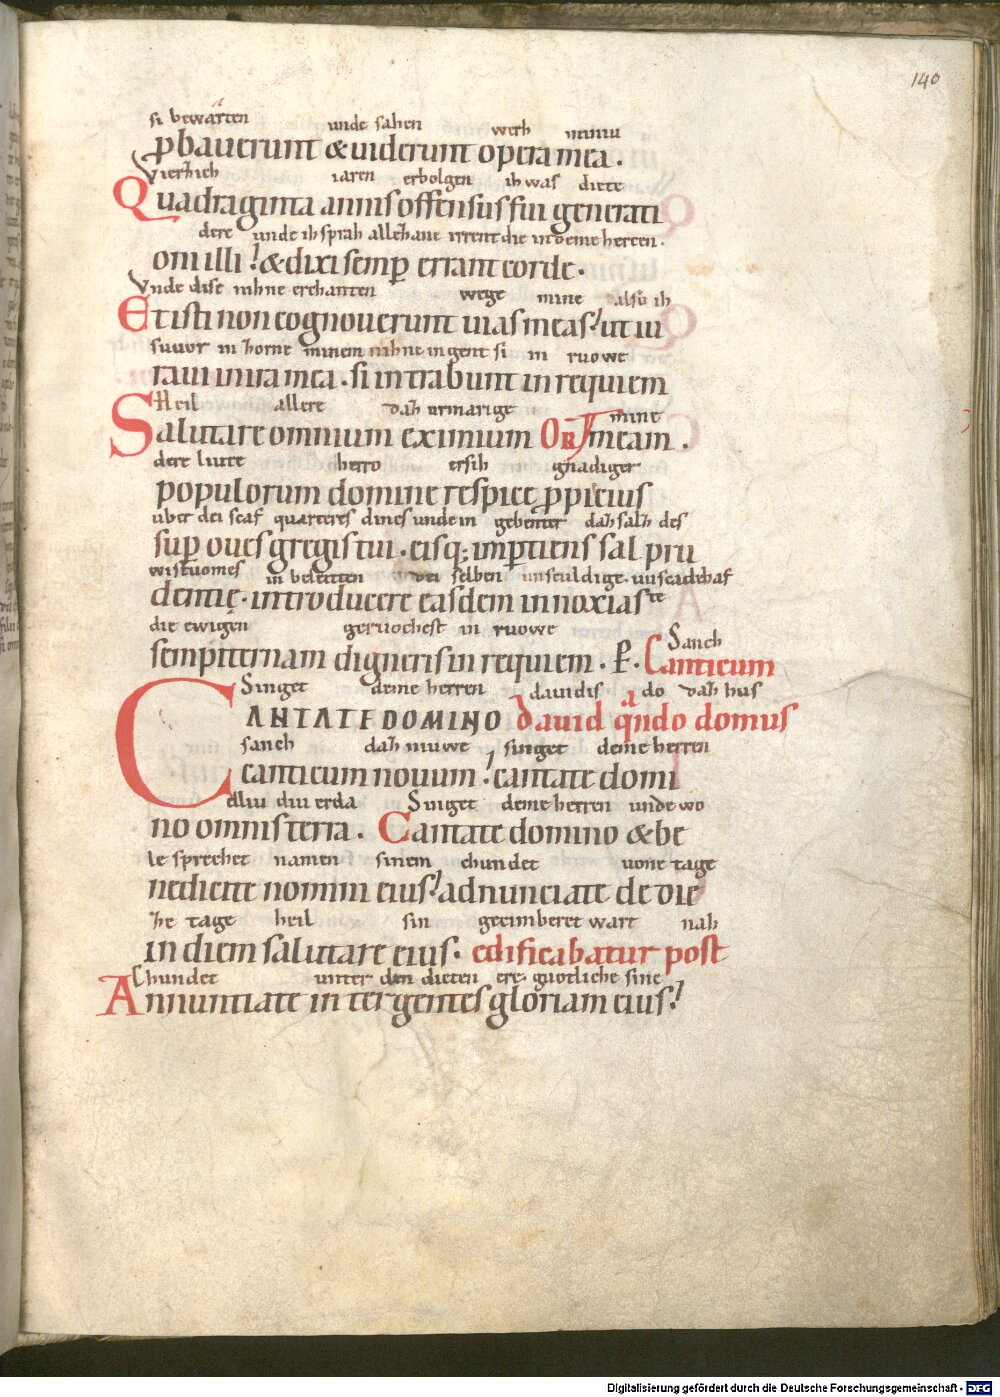 140
si bewarten unde sahen werh miniu
pbauerunt & uiderunt opera mea .
Vierzich iaren erbolgen ih was diete
Quadraginta annis offensus fui generati
dere unde ih sprah allezane irrent die in deme hercen .
oni illi : & dixi semp errant corde .
Vnde dise nihne erchanten wege mine alsů ih
Et isti non cognouerunt uias meas : ut iu
suuor in zorne minem nihne ingent si in ruowe
raui in ira mea . si intrabunt in requiem
Heil allere daz urmarige mine
Salutare omnium eximium OR meam .
dere liute herro ersih gnadiger
populorum domine respice ppicius
uber dei scaf quarteres dines unde in gebenter daz salz des
sup oues gregis tui . eisq; imptiens sal pru
wistuomes in beleitten selben unsculdige . unscadehaf
dentię . introducere easdem in noxias te
die ewigen geruochest in ruowe
sempiternam digneris in requiem . P . Canticum
Sanch
Singet deme herren dauidis do daz hus
CANTATE DOMINO dauid qndo domus
sanch daz niuwe singet deme herren
canticum nouum : cantate domi
elliu diu erda Singet deme herren unde wo
no omnis terra . Cantate domino & be
le sprechet namen sinem chundet uone tage
nedicite nomini eius : adnunciate de die
ze tage heil sin gecimberet wart nah
in diem salutare eius . edificabatur post
Chundet unter den dieten ere guotliche sine
Annuntiate inter gentes gloriam eius :
Digitalisierung gefördert durch die Deutsche Forschungsgemeinschaft - DFG